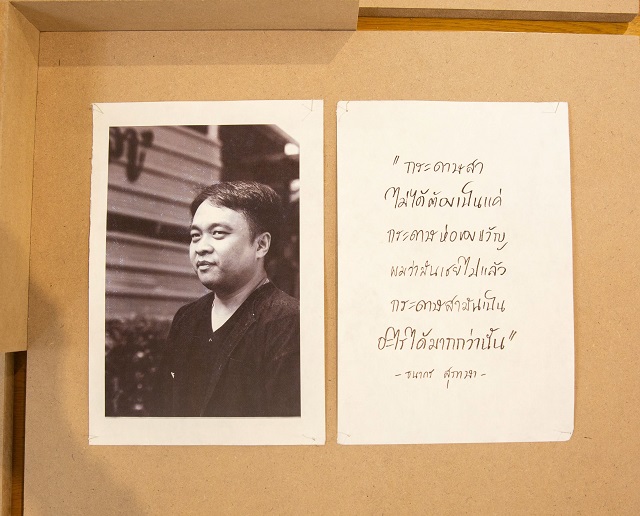 " กระดาษสา
ไม่ได้ต้องเป็นแค่
กระดาษห่อของขวัญ
ผมว่ามันเชยไปแล้ว
กระดาษสามันเป็น
อะไรได้มากกว่านั้น"
- ธนากร สุภาษา -